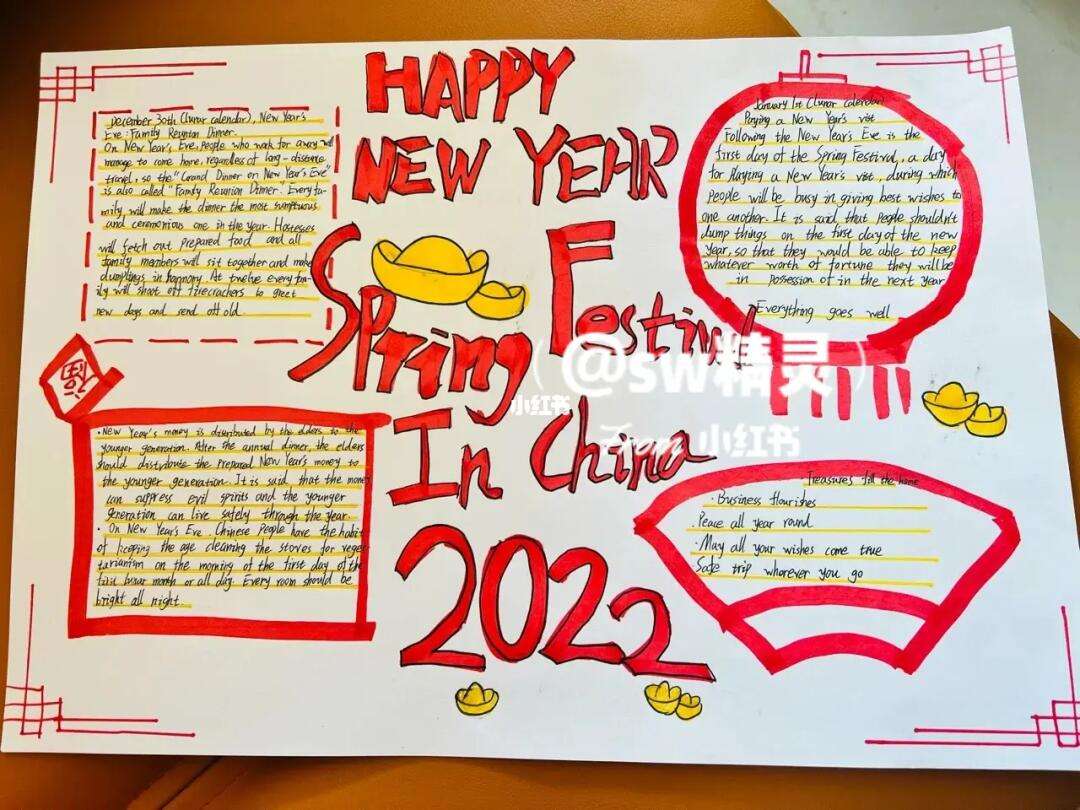 HAPPY
NEW YEAR
Spring Festival
In China
2022
December 30th (lunar calendar), New Year's
Eve: Family Reunion Dinner.
On New Year's Eve, people who work far away will
manage to come home, regardless of long-distance
travel, so the "Grand Dinner on New Year's Eve"
is also called "Family Reunion Dinner. Every fa-
mily will make the dinner the most sumptuous
and ceremonious one in the year. Hostesses
will fetch out prepared food and all
family members will sit together and make
dumplings in harmony. At twelve every fa-
ily will shoot off firecrachers to greet
new days and send off old.
January 1st (lunar calendar)
Paying a New Year's visit
Following the New Year's Eve is the
first day of the Spring Festival, a day
for Playing a New Year's visit, during which
people will be busy in giving best wishes to
one another. It is said that people shouldn't
dump things on the first day of the new
year, so that they would be able to keep
whatever worth of fortune they will be
in possession of in the next year
Everything goes well
福
·New Year's money is distributed by the elders to the
younger generation. After the annual dinner. the elders
should distribute the prepared New Year's money to
the younger generation. It is said that the money
can suppress evil spirits and the younger
generation can live safely through the year
· On New Year's Eve. Chinese people have the habit
of keeping the age cleaning the stoves for vege-
tarianism on the morning of the first day of the
first lunar month or all day. Every room should be
bright all night.
Treasures fill the home
·Business flourishes
·Peace all year round
·May all your wishes come true
Safe trip wherever you go
@sw精灵
小红书
From 小红书